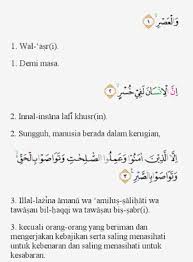 وَالْعَصْرِۙ ١
1. Wal-‘aṣr(i).
1. Demi masa.
اِنَّ الْاِنْسَانَ لَفِيْ خُسْرٍۙ ٢
2. Innal-insāna lafī khusr(in).
2. Sungguh, manusia berada dalam kerugian,
اِلَّا الَّذِيْنَ اٰمَنُوْا وَعَمِلُوا الصّٰلِحٰتِ وَتَوَاصَوْا بِالْحَقِّ ەۙ
وَتَوَاصَوْا بِالصَّبْرِ ٣
3. Illal-lażīna āmanū wa ‘amiluṣ-ṣāliḥāti wa
tawāṣau bil-ḥaqqi wa tawāṣau biṣ-ṣabr(i).
3. kecuali orang-orang yang beriman dan
mengerjakan kebajikan serta saling menasihati
untuk kebenaran dan saling menasihati untuk
kesabaran.